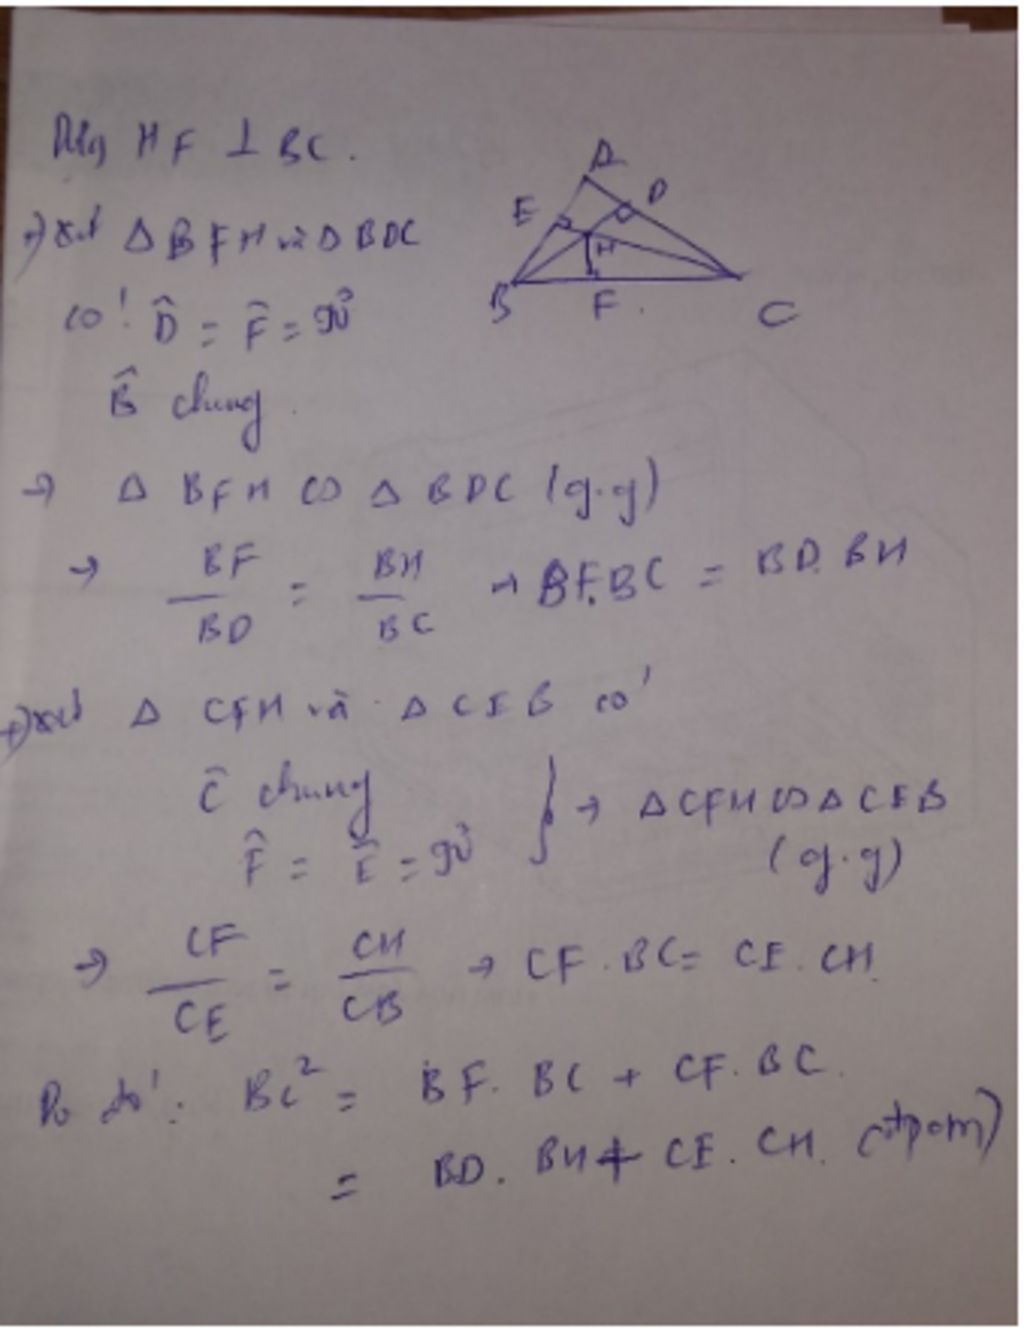 HF ⊥ BC.
A
D
E
H
B
F
C
Δ BFH và Δ BDC
có: D̂ = F̂ = 90°
B̂ chung.
→ Δ BFH ∽ Δ BDC (g.g)
→ BF/BD = BH/BC → BF.BC = BD.BH
+) xét Δ CFH và Δ CEB có
Ĉ chung
F̂ = Ê = 90° } → Δ CFH ∽ Δ CEB
(g.g)
→ CF/CE = CH/CB → CF.BC = CE.CH.
Do đó: BC² = BF.BC + CF.BC.
= BD.BH + CE.CH. (đpcm)